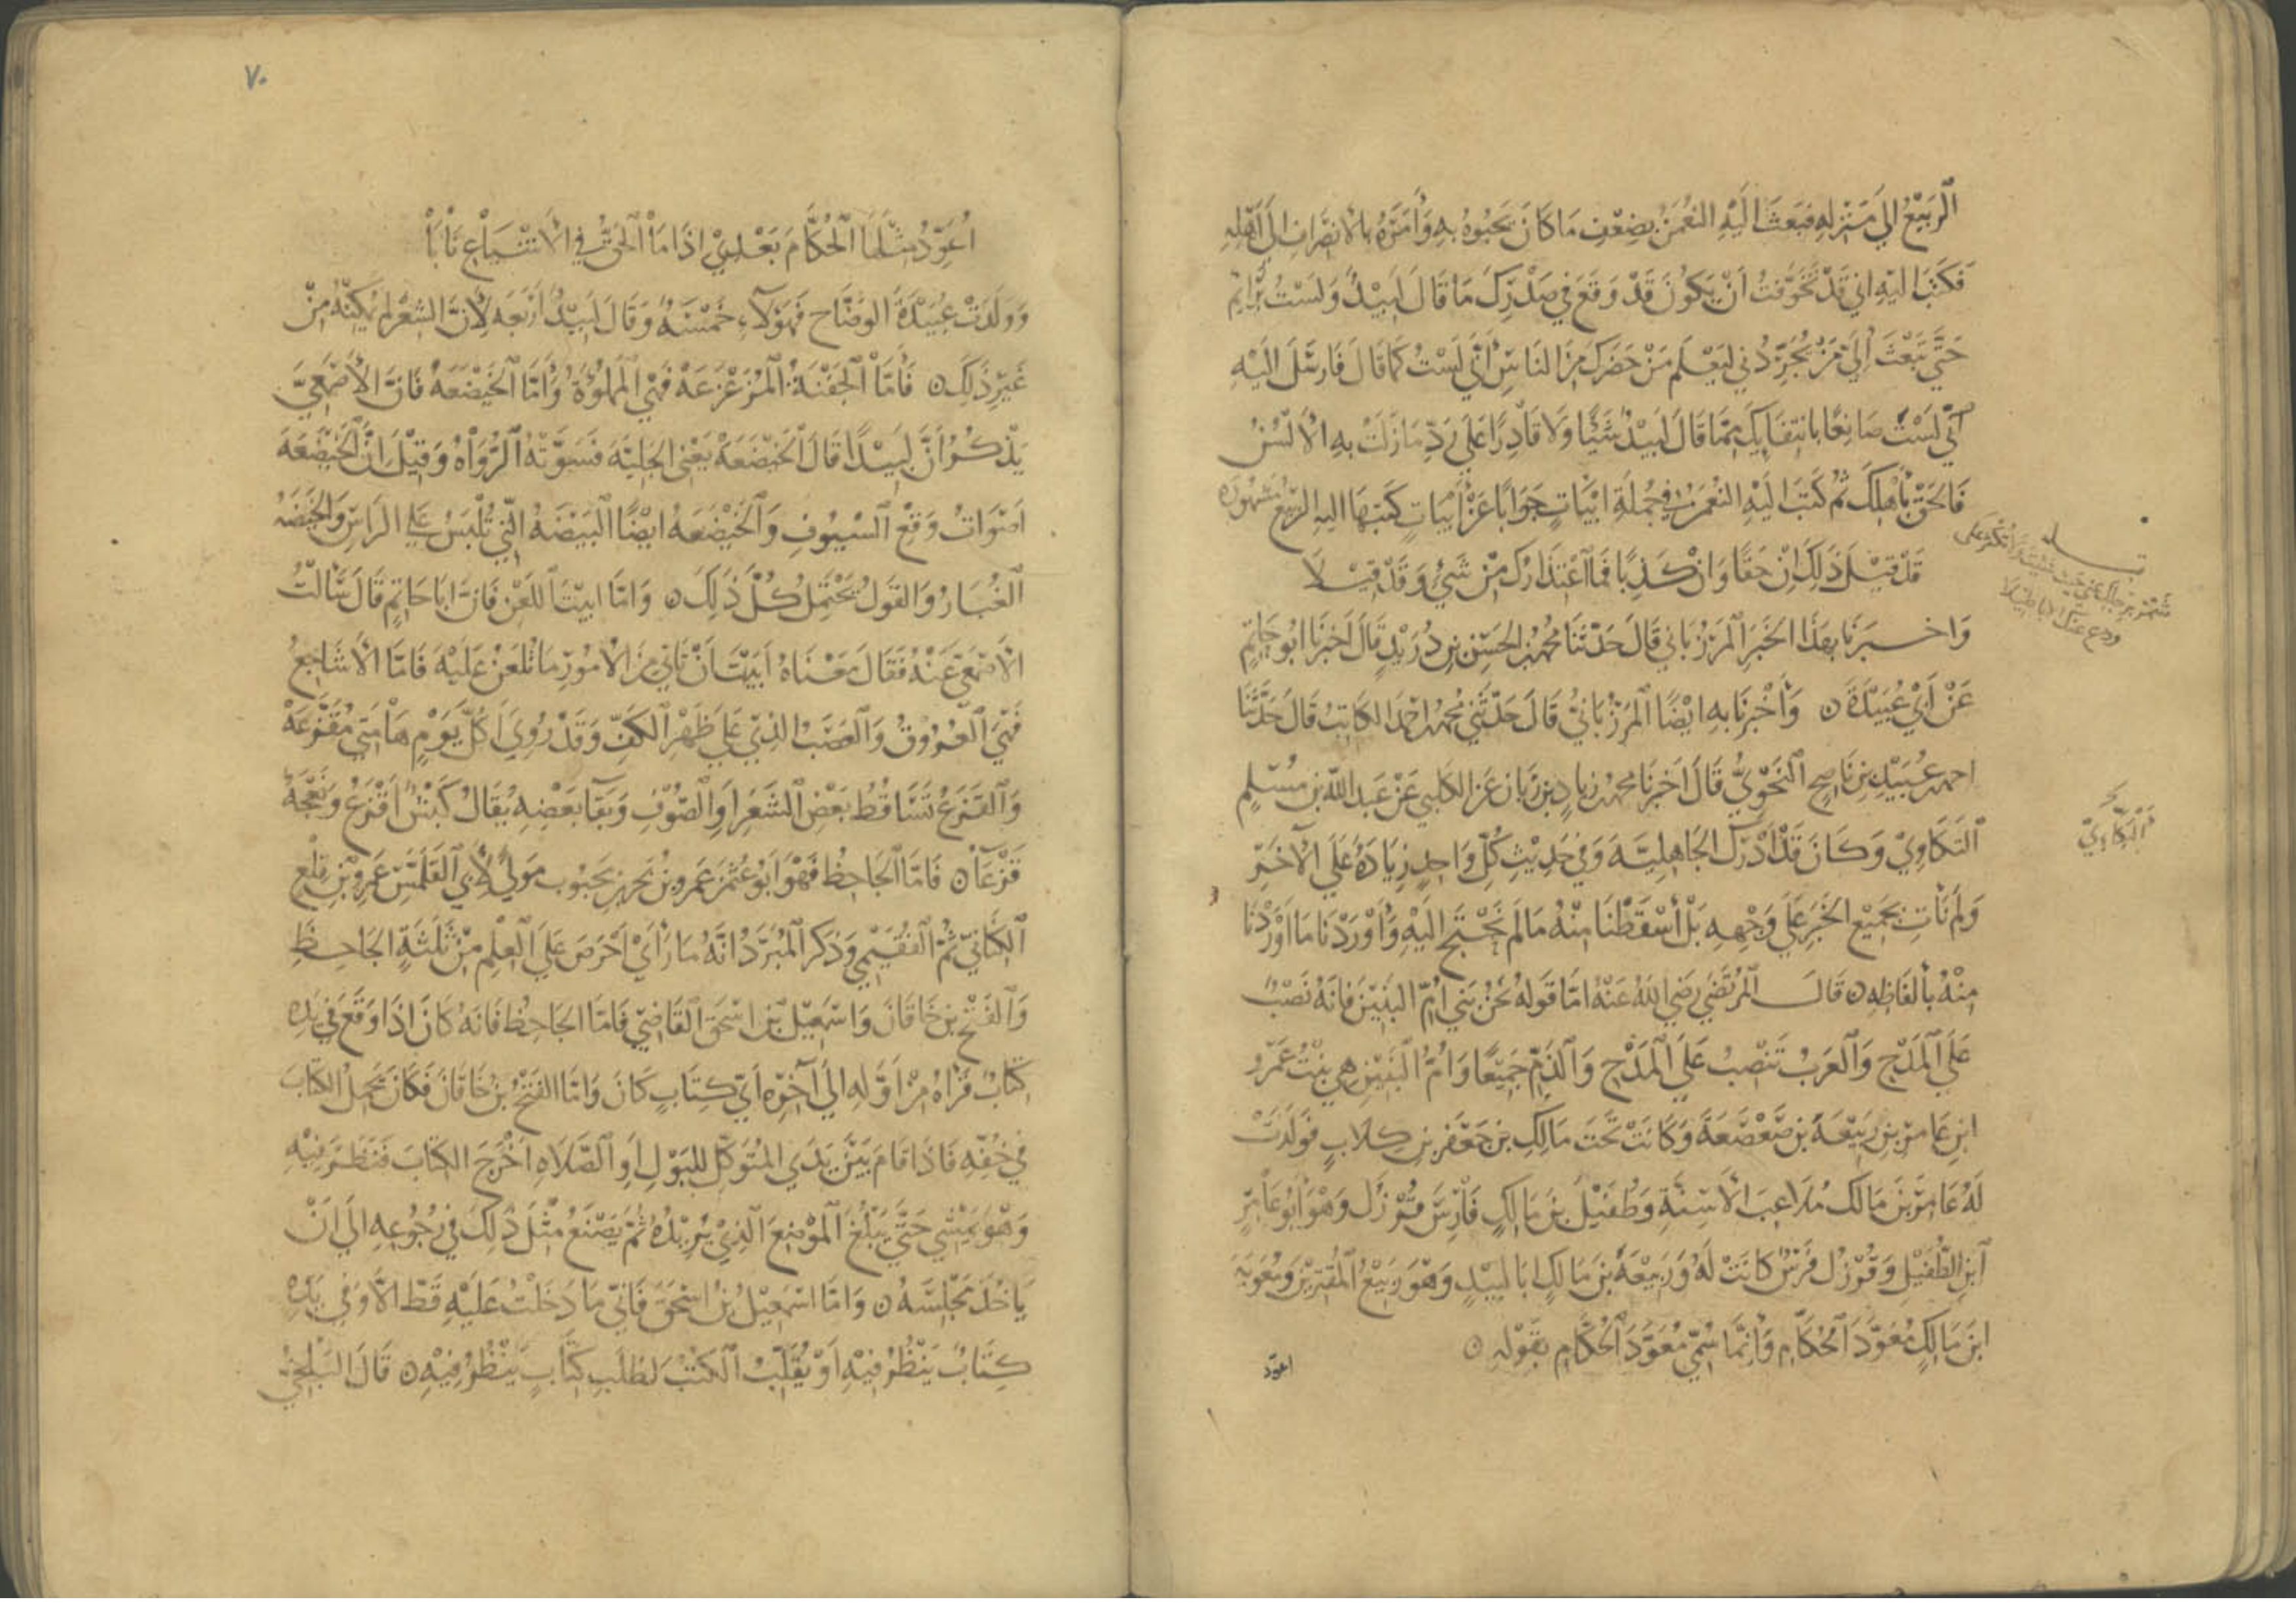 الرَّبيعُ الي مَنزلهِ فبَعَثَ اليَهِ النعْمنُ بضِعْفِ مَا كانَ يَحْبُوهُ بهِ وَأمَرَهُ بالانصَرافِ الَى اَهْلهِ
فكتَبَ اليهِ اني قَدْ تَخوَّفتُ اَنْ يكُونَ قَدْ وَقعَ في صَدْرِكَ مَا قالَ لَبيْدٌ وَلسْتُ برَائمٍ
حَتَّي تبْعَثَ اِليَّ مَنْ يُجَرِّدُني ليَعْلَم مَنْ حَضَركَ مِنَ الناسِ أنّي لَسْتُ كمَا قالَ فارسَلَ اليْهِ
انّي لَسْتُ صَانعًا بانتفَايكَ ممّا قالَ لَبيْدٌ شَيْئًا وَلا قادِرًا عَلَي رَدِّ مَا زَلتْ بهِ الالْسُنُ
فالحَقْ باَهْلِكَ ثم كتَبَ اليَهِ النعْمنُ في جُملَةِ ابيَاتٍ جَوَابًا عَنْ أبياتٍ كتبَهَا اليهِ الرَّبيعُ مَشهُورَه
شمّر برحلكَ عني حيثُ شئتَ وَلا تكثر عَلى
ودع عنك الاباطيلا
قَدْ قيْلَ ذلكَ اِنْ حَقًّا وَانْ كذِبًا فمَا اعْتذَارُكَ مِنْ شَيْءٍ وَقَدْ قيْلا
وَاخبَرنَا بهَذا الخَبَرِ المَرْزُباني قالَ حَدّثنَا محمدُ بن الحَسَنِ بنِ دُرَيْدٍ قالَ اَخبرَنا ابُو حَاتمٍ
عَنْ اَبي عُبيْدَةَ ٥ وَأخْبرنَا بهِ ايْضًا المَرْزُبانيُّ قالَ حَدّثني محمدُ بن احمدَ الكاتبُ قالَ حَدّثنَا
احمد بن عُبَيْدِ بنِ نَاصِحٍ النَحْوِيُّ قالَ اَخبرَنا محمد بن زيادِ بن زَبّان عَنِ الكلبي عَنْ عَبدِ اللهِ بن مُسْلِمٍ
التَكّاوِيْ وَكانَ قَدْ اَدْرَكَ الجَاهِليّةَ وَفي حَدِيْثِ كُلِّ وَاحِدٍ زيَادَةٌ عَلَي الآخَرِ
البَكّاوِيْ
وَلمْ نَاتِ بجَميْعِ الخَبَرِ عَلَي وَجْههِ بَلْ أسْقَطْنَا مِنْهُ مَا لَم نَحْتَجْ اليْهِ وَأوْرَدْنَا مَا اَوْرَدْنَا
مِنْهُ بألفاظِهِ ٥ قالَ المرُتَضي رَضيَ اللهُ عَنْهُ امّا قَولهُ نحْنُ بَني أمِّ البَنيْنَ فانهُ نَصْبٌ
عَلَى المَدْحِ وَالعَرَبُ تَنْصِبُ عَلَي المَدْحِ وَالذَمِّ جَميْعًا وَأمُّ البَنيْنَ هيَ بنْتُ عَمْرِو
ابنِ عَامِرِ بنِ رَبيْعَةَ بنِ صَعْصَعَةَ وَكانَتْ تَحْتَ مَالِكِ بن جَعْفر بنِ كلابٍ فوَلَدَتْ
لَهُ عَامِرَ بنَ مَالك مُلاعِبَ الأسِنّةِ وَطُفَيْلَ بنَ مَالِكٍ فارِسَ قُرْزَل وَهْوَ أبُو عَامِرِ
ابنِ الطُّفَيْلِ وَقُرْزُل فَرسٌ كانَتْ لَهُ وَرَبيْعَةَ بنَ مَالِكٍ ابَا لَبيْدٍ وَهْوَ رَبيْعُ المُقتِرِيْنَ وَمُعوِيَةَ
ابنَ مَالِكٍ مُعَوِّدَ الحُكّامِ وَاِنّمَا سُمّيَ مُعَوِّدَ الحُكّامِ بقَوْلهِ ٥
اعوّد
٧٠
اُعَوِّدُ مِثلَهَا الحُكّامَ بَعْدِيْ اذا مَا الحَقُّ في الاشْيَاعِ نَابَا
وَوَلَدَتْ عُبَيْدَةَ الوَضّاح فهَؤلآءِ خَمْسَةٌ وَقالَ لَبيْدٌ أرْبَعَه لأنّ الشِعْرَ لم يُمكِنْهُ مِنْ
غَيْرِ ذلِكَ ٥ فَأمّا الجَفْنَةُ المُزَعْزَعَةُ فهْيَ المَمْلوُءَةُ وَأمّا الخَيْضَعَةُ فَانّ الاَصْمَعِيّ
يَذْكُرُ أنّ لَبيْدًا قالَ الخَضَعَةْ يَعْني الجَلَبَةَ فَسَوّتْهُ الرُّوَاةُ وَقيْلَ اِنّ الخَيْضَعَةَ
اصْوَاتُ وَقْعِ السُّيُوفِ وَالخَيْضَعَهُ ايْضًا البَيْضَةُ الّتي تُلْبَسُ عَلي الرَاسِ وَالخَيْضَعَهُ
الغُبَارُ وَالقَولُ يَحْتَمِلُ كُلّ ذلِكَ ٥ وَامّا ابيْتَ اللعْنَ فانّ ابَا حَاتِمٍ قالَ سَألْتُ
الاصْمَعيّ عَنْهُ فقَالَ مَعْنَاهُ أبَيْتَ اَنْ تاتيَ مِنَ الامُورِ مَا تُلعَنُ عَلَيْهِ فامّا الأشَاجِعُ
فَهيَ العُرُوْقُ وَالعَصَبُ الذِيْ عَلَى ظَهْرِ الكَفِّ وَقَدْ رُوِيَ اَكُلَّ يَوْمٍ هَامَتي مُقَزّعَهْ
وَالقَزَعُ تَسَاقُطُ بَعْضِ الشَعَرِ اَوِ الصُّوْفِ وَبقَا بَعْضِهِ يُقالُ كَبْشٌ اَقْزَعُ وَنَعْجَةٌ
قَزْعَآءُ ٥ فامّا الجَاحِظُ فهُوَ ابُو عُثمنَ عَمرو بن بَحْرِ بنِ مَحْبُوب مَولًى لأبي القَلَمّسِ عَمرِو بْنِ قِلْعٍ
الكِنَانيّ ثُمّ الفُقَيْمي وَذكَرَ المُبرّدُ انّهُ مَا رَأَيْ اَحْرَصَ عَلَى العِلْمِ مِنْ ثَلثَةٍ الجَاحِظِ
وَالفَتْحِ بن خَاقانَ وَاسْمَعِيْلَ بْنِ اسْحَقَ القَاضي فَامّا الجَاحِظُ فانّهُ كانَ اذا وَقَعَ في يَدِهِ
كتَابٌ قَرأهُ مِنْ أوّلهِ اليَ آخرِه أيَّ كِتَابٍ كانَ وَامّا الفَتْحُ بْنُ خَاقَانَ فكَانَ يَحمِلُ الكتابَ
في خُفّهِ فَاذا قامَ بَيْنَ يَدَيِ المُتوَكّلِ للبَوْلِ اَوِ الصّلاهِ اَخْرَجَ الكِتَابَ فَنَظَرَ فيْهِ
وَهْوَ يَمْشي حَتّي يَبْلُغَ المَوْضِعَ الذِيْ يُرِيْدُهُ ثُمّ يَصْنَعُ مِثْلَ ذلِكَ في رُجُوعِهِ الي اَنْ
يَاخُذَ مَجْلِسَهُ ٥ وَامّا اسْمَعِيْلُ بْنُ اسْحَقَ فَانّي مَا دَخَلْتُ عَلَيْهِ قَطّ الاّ وَفي يَدِهِ
كِتَابٌ يَنْظُرُ فيْهِ أوْ يُقَلّبُ الكتُبَ لطَلَبِ كِتَابٍ يَنْظُرُ فيْهِ ٥ قَالَ البَلْخيّ